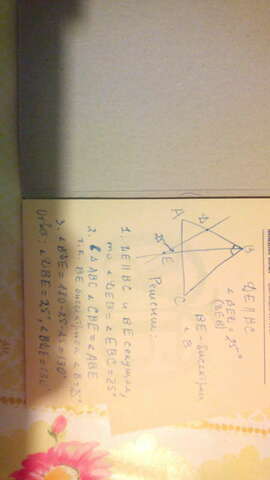 DE || BC
∠DEB = 25°
(DEB)
BE - биссектриса
∠B
B
D
A
E
C
25°
Решение:
1. DE||BC и BE секущая,
то ∠DEB = ∠EBC = 25°
2. ∆ABC ∠CBE = ∠ABE
т.к. BE биссектриса ∠B = 25°
3. ∠BDE = 180-25·2 = 130°
Ответ: ∠DBE = 25°, ∠BDE = 130